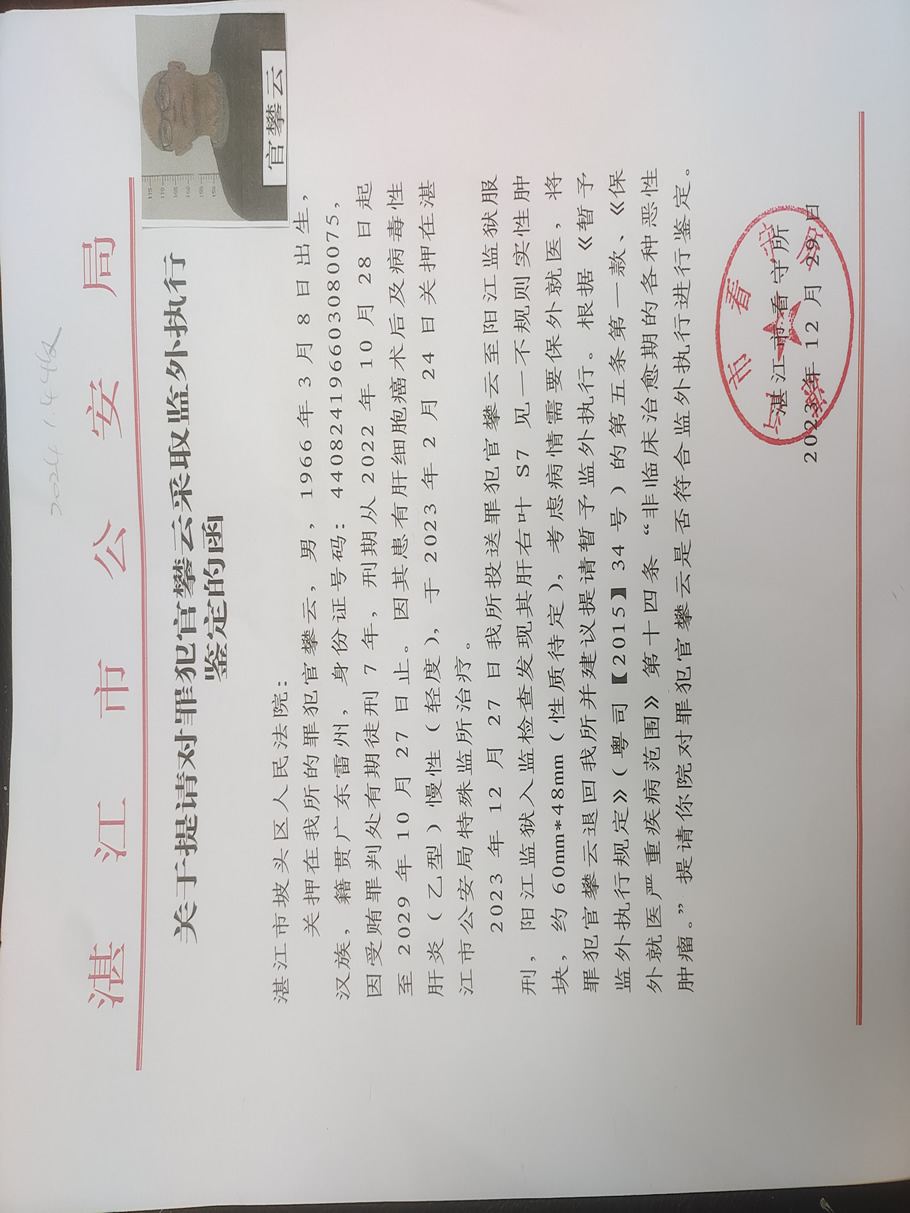 2024.1.4收
湛江市公安局
关于提请对罪犯官攀云采取监外执行
鉴定的函
175
170
165
160
155
150
官攀云
湛江市坡头区人民法院：
关押在我所的罪犯官攀云，男，1966年3月8日出生，
汉族，籍贯广东雷州，身份证号码：440824196603080075，
因受贿罪判处有期徒刑7年，刑期从2022年10月28日起
至2029年10月27日止。因其患有肝细胞癌术后及病毒性
肝炎（乙型）慢性（轻度），于2023年2月24日关押在湛
江市公安局特殊监所治疗。
2023年12月27日我所投送罪犯官攀云至阳江监狱服
刑，阳江监狱入监检查发现其肝右叶S7见一不规则实性肿
块，约60mm*48mm（性质待定），考虑病情需要保外就医，将
罪犯官攀云退回我所并建议提请暂予监外执行。根据《暂予
监外执行规定》（粤司【2015】34号）的第五条第一款、《保
外就医严重疾病范围》第十四条“非临床治愈期的各种恶性
肿瘤。”提请你院对罪犯官攀云是否符合监外执行进行鉴定。
湛江市看守所
2023年12月29日
市看